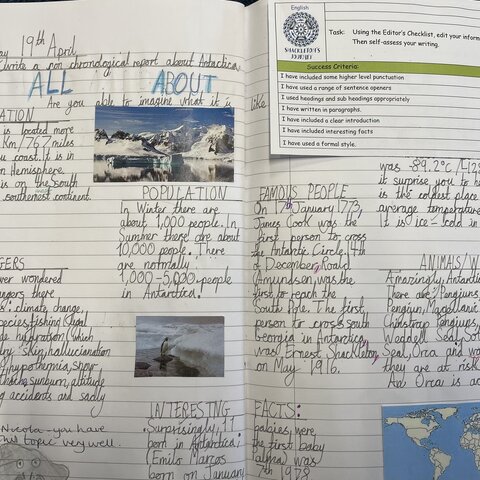 19th April
write a non chronological report about Antarctica
ALL ABOUT
Are you able to imagine what it is like
ATION
is located more
Km/76/miles
coast. It is in
Hemisphere
is on the south
southernest continent.
POPULATION
In Winter there are
about 1,000 people. In
Summer there are about
10,000 people. There
are normally
1,000-5,000 people
in Antarctica.
GERS
ever wondered
angers there
climate change,
species, fishing
hydration (which
dry skin, hallucination
hypothermia, snow
sunburn, altitude
accidents and sadly
Nicola - you have
topic very well.
INTERESTING FACTS:
Surprisingly, 11 babies, were
born in Antarctica! the first baby
(Emilo Marcos Palma) was
born on January 7th 1978
English
SHACKLETON'S JOURNEY
Task: Using the Editor's Checklist, edit your inform
Then self-assess your writing.
Success Criteria:
I have included some higher level punctuation
I have used a range of sentence openers
I used headings and sub headings appropriately
I have written in paragraphs.
I have included a clear introduction
I have included interesting facts
I have used a formal style.
FAMOUS PEOPLE
On 17th January 1773,
James Cook was the
first person to cross
the Antarctic Circle. 4th
of December, Roald
Amundsen was the
first to reach the
South Pole. The first
person to cross south
Georgia in Antarctica,
was Ernest Shackleton
on May 1916.
was -89.2°c /-128
it surprise you to h
is the coldest place
average temperature
It is ice-cold in
ANIMALS/W
Amazingly, Antarctic
There are: Penguins,
Penguin, Magellanic
Chinstrap Penguins,
Weddell Seal,
Seal, Orca, and wa
they are at risk
An Orca is a